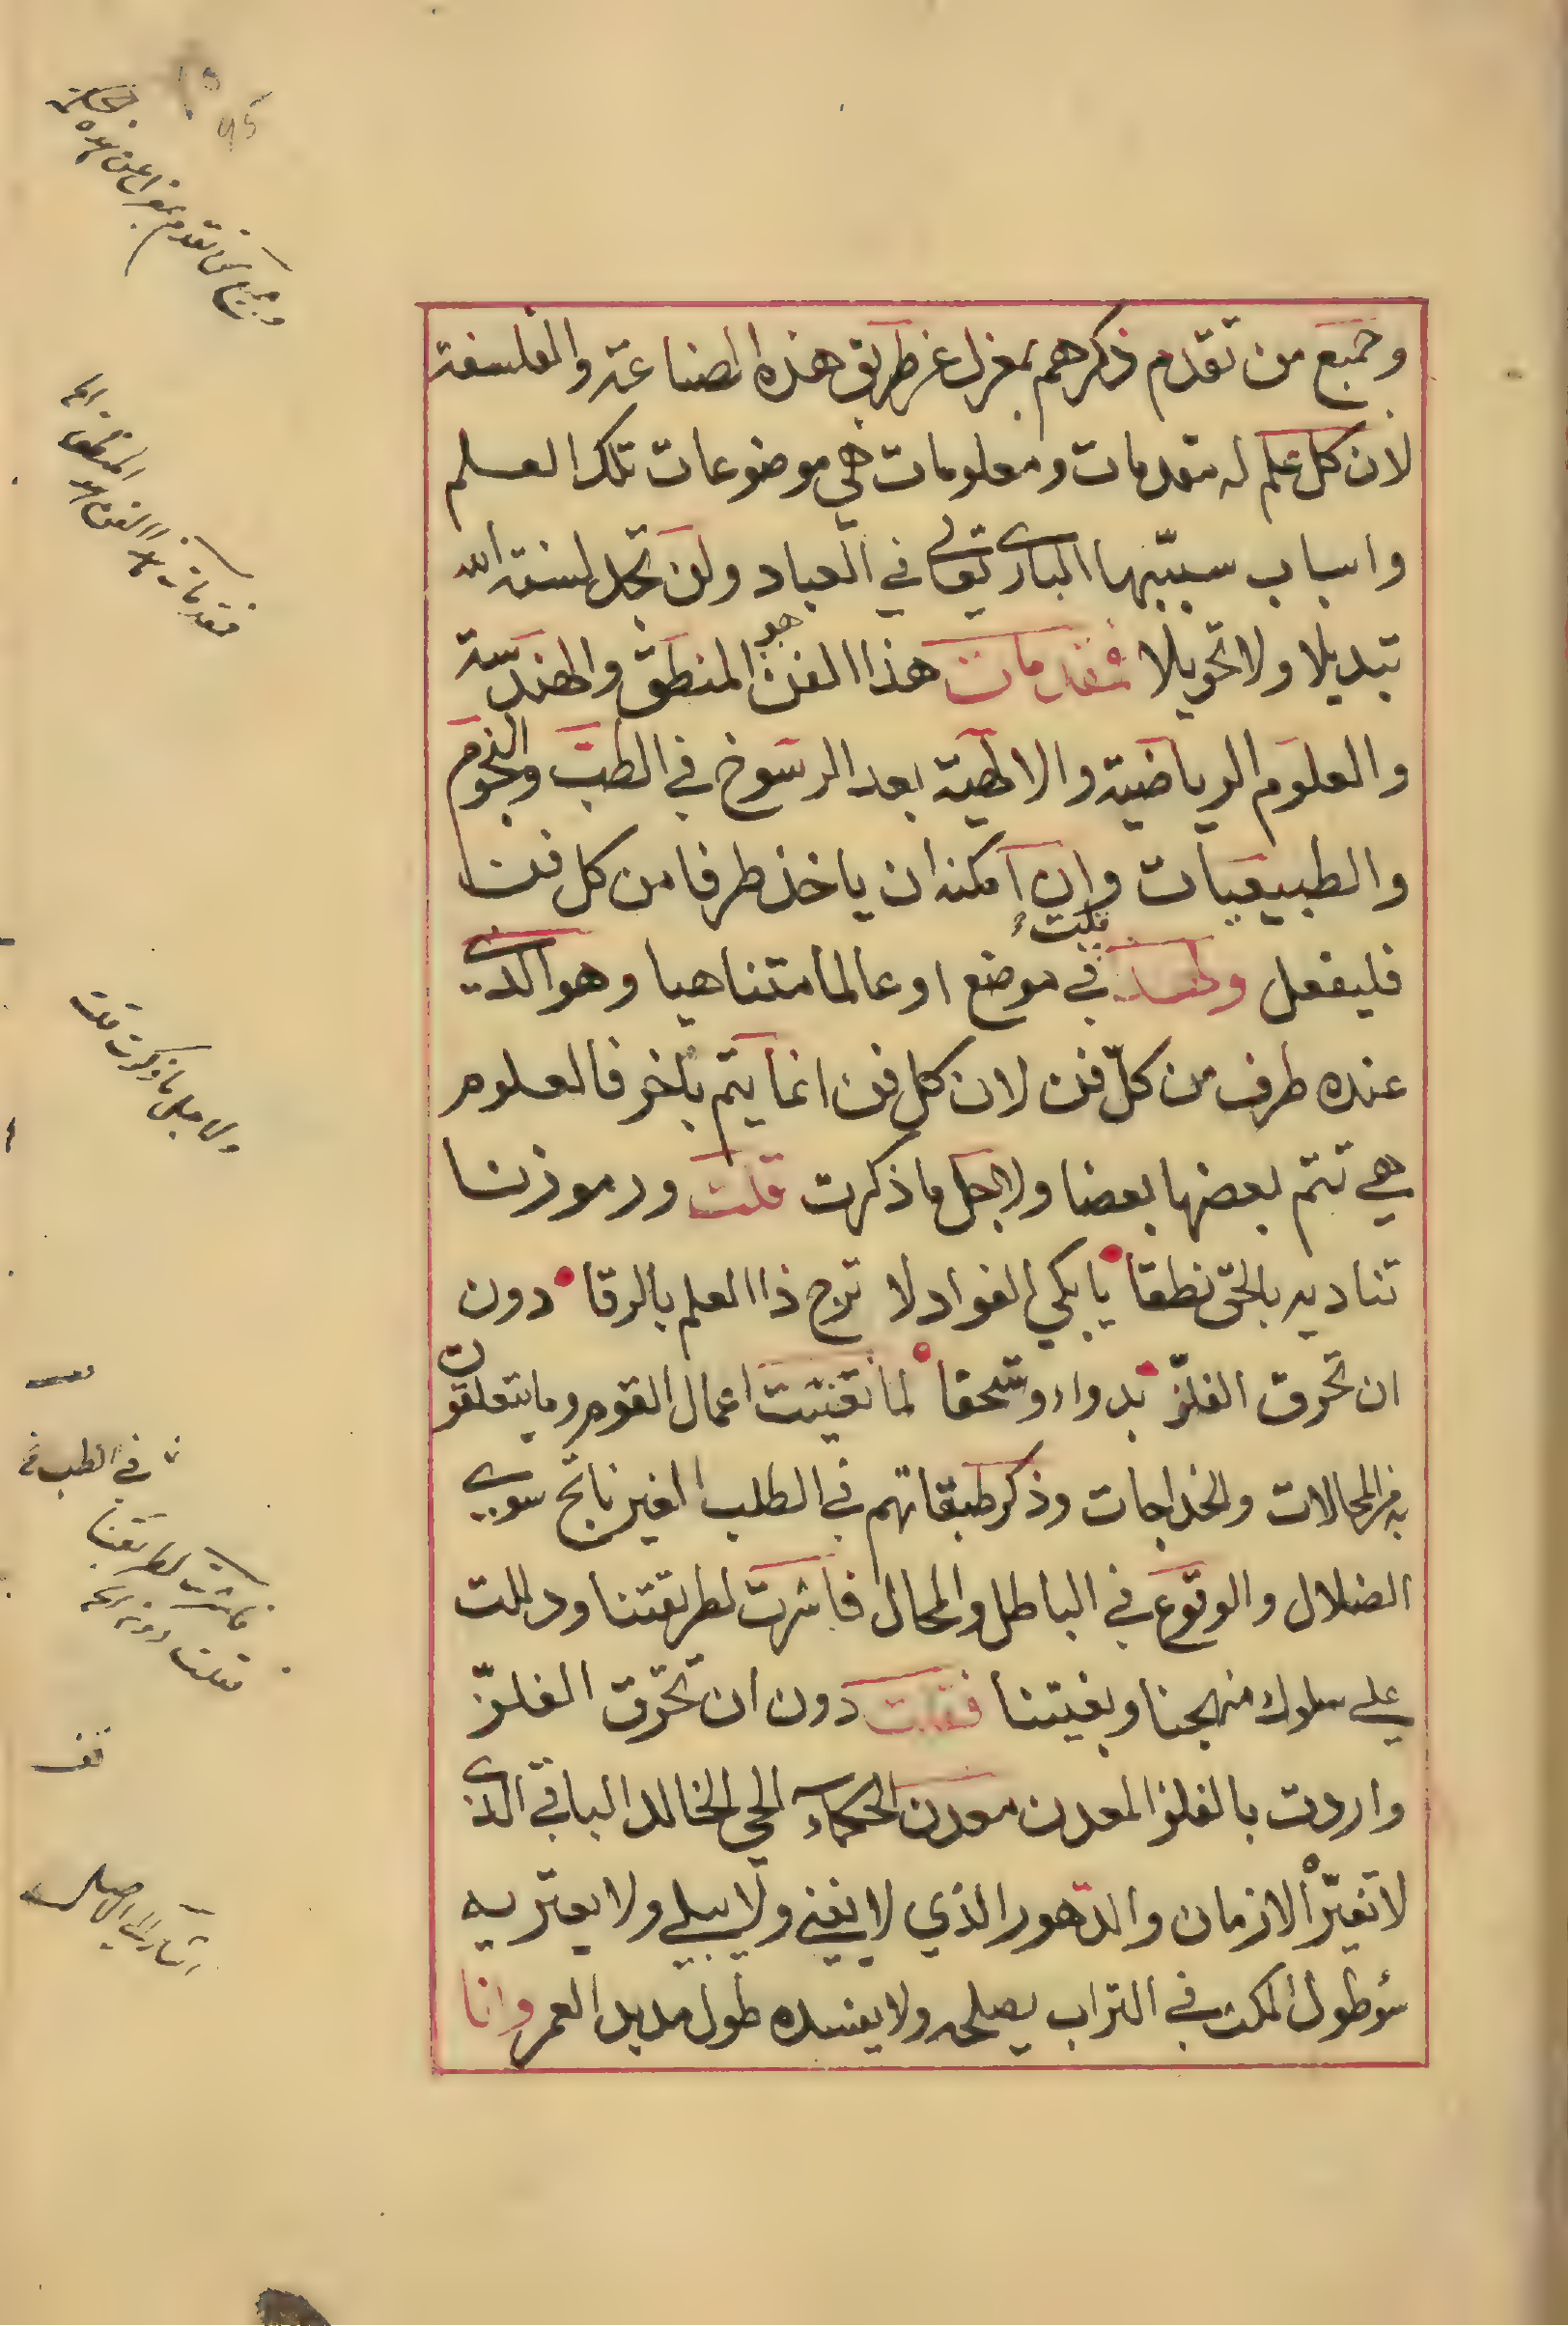 وجميع من تقدم ذكرهم بمعزل عن طريق هذه الصناعة والفلسفة
لان كل علم له مقدمات ومعلومات هي موضوعات تلك العلم
واسباب سببّها الباري تعالى في العباد ولن تجد لسنة الله
تبديلا ولا تحويلا فمقدمات هذا الفن هو المنطق والهندسة
والعلوم الرياضية والالهية بعد الرسوخ في الطب والنجوم
والطبيعيات وان امكنه ان ياخذ طرفا من كل فن
فليفعل ولهذا قلت في موضع او عالما متناهيا وهو الذي
عنده طرف من كلّ فن لان كل فن انما يتم بآخر فالعلوم
هي تتم بعضها بعضا ولاجل ما ذكرت قلت ورموزنا
تناديه بالحق نطقا يا بكي الفواد لا ترج ذا العلم بالرقا دون
ان تحرق الفلزّ بدواء وسحقا لما تقينت اعمال القوم وما يتعلقون
به من المحالات والخداجات وذكر طبقاتهم في الطلب الغير ناتج سوى
الضلال والوقوع في الباطل والمحال فاشرت لطريقتنا ودللت
على سلوك منهجنا وبغيتنا فقلت دون ان تحرق الفلزّ
واردت بالفلز المعدن معدن الحكماء الحي الخالد الباقي الذي
لا تغيّره الازمان والدهور الذي لا يفنى ولا يبلى ولا يعتريه
سؤ طول المكث في التراب يصلحه ولا يفسده طول مديد العمر وانا
ولاجل ما ذكرت قلت
في الطب
فاشرت لطريقتنا
فقلت دون الخ
قف